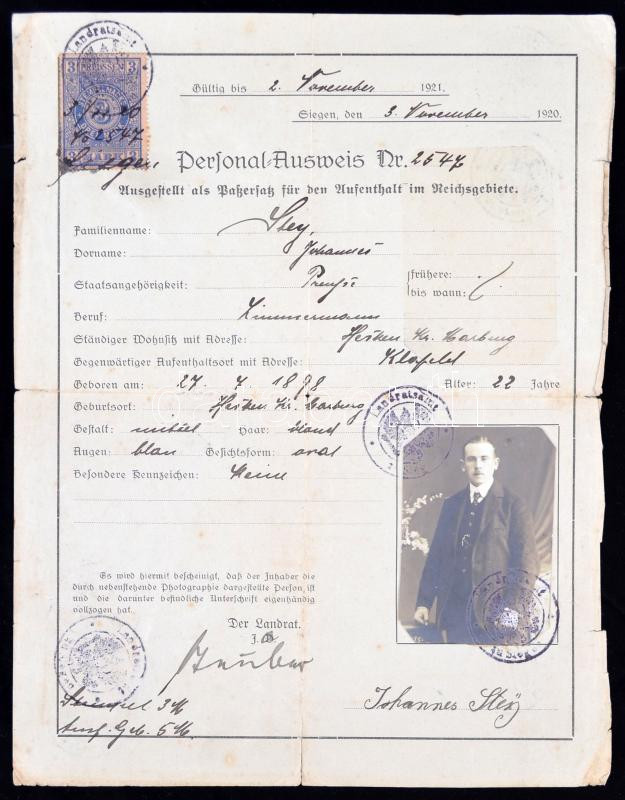 Landratsamt
3 PREUSSEN 3
3/11 20
No 2547
Siegen
3 MARK 3
Gültig bis 2. November 1921.
Siegen, den 3. November 1920.
Personal-Ausweis Nr. 2547
Ausgestellt als Paßersatz für den Aufenthalt im Reichsgebiete.
Familienname: Stey,
Vorname: Johannes
Staatsangehörigkeit: Preuße frühere:
bis wann:
Beruf: Zimmermann
Ständiger Wohnsitz mit Adresse: Hesken Kr. Marburg
Gegenwärtiger Aufenthaltsort mit Adresse: Klafeld
Geboren am: 27. 7 1898 Alter: 22 Jahre
Geburtsort: Hesken Kr. Marburg
Gestalt: mittel Haar: blond
Augen: blau Gesichtsform: oval
Besondere Kennzeichen: Keine
Landratsamt
Es wird hiermit bescheinigt, daß der Inhaber die
durch nebenstehende Photographie dargestellte Person, ist
und die darunter befindliche Unterschrift eigenhändig
vollzogen hat.
Der Landrat.
Landratsamt
Landratsamt
Johannes Steÿ
Stempel 3 M
Ausf. Geb. 5 M.